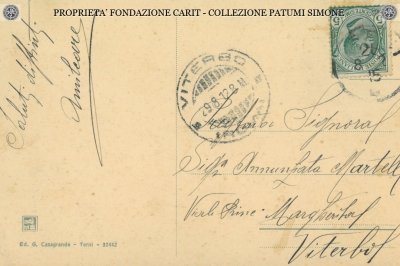 PROPRIETA' FONDAZIONE CARIT - COLLEZIONE PATUMI SIMONE
Saluti distinti
Amilcare
VITERBO
29.8.12.8
21
8
15
Signora
Sig.ra Annunsata Martell
Viale Princ. Margherita
Viterbo
Ed. G. Casagrande - Terni - 20462